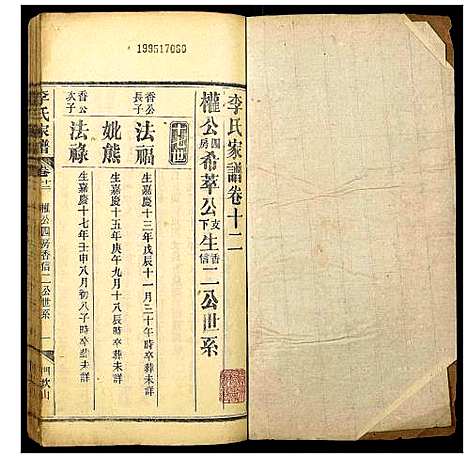 199517060
李氏家譜卷十二
權公四房希萃公支下生香信二公世系
香公長子
法福
生嘉慶十三年戊辰十一月三十午時卒葬未詳
妣熊
生嘉慶十五年庚午九月十八辰時卒葬未詳
香公次子
法祿
生嘉慶十七年壬申八月初八子時卒葬未詳
李氏家譜
卷十二
權公四房香信二公世系
一